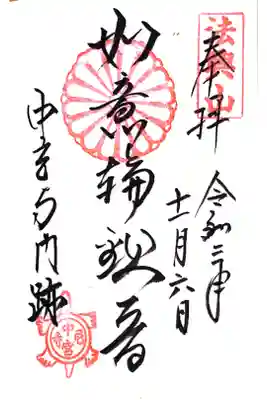 法興山
奉拝
令和二年
十一月六日
如意輪観音
中宮寺門跡